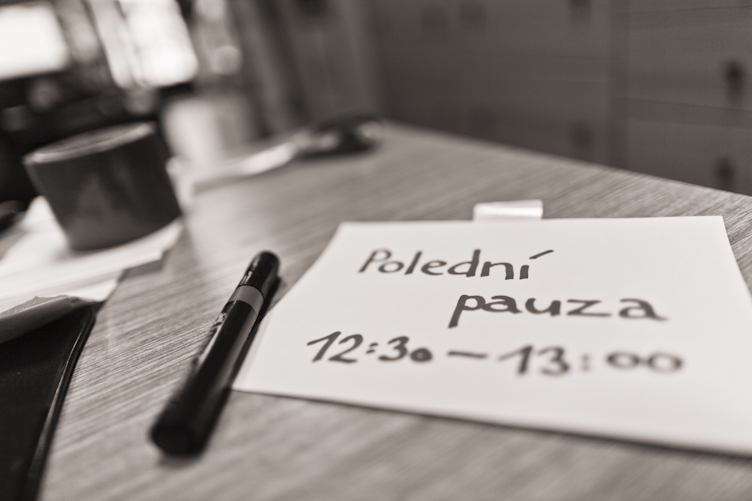 Polední
pauza
12:30 – 13:00